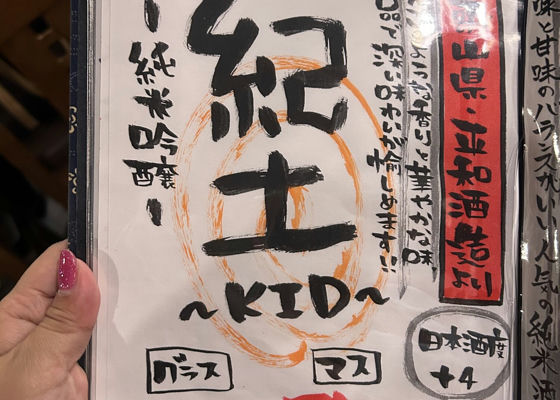 味と甘味のバランスがいい人気の純米酒
山県・平和酒造より
な香りと華やかな味
品で深い味わいが愉しめます!!
紀士
~KID~
-純米吟醸-
日本酒度
+4
グラス
マス